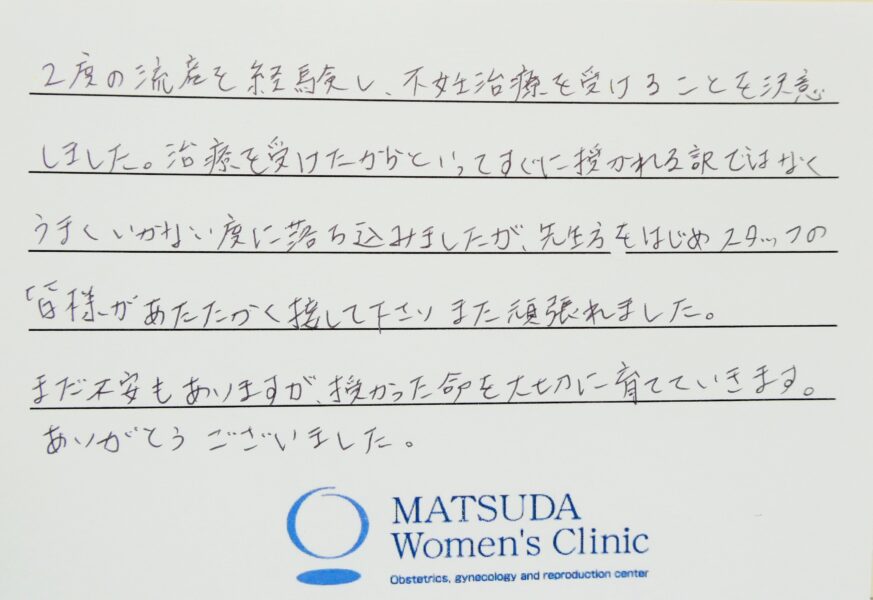 2度の流産を経験し、不妊治療を受けることを決意
しました。治療を受けたからといってすぐに授かれる訳ではなく
うまくいかない度に落ち込みましたが、先生方をはじめスタッフの
皆様があたたかく接して下さりまた頑張れました。
まだ不安もありますが、授かった命を大切に育てていきます。
ありがとうございました。
MATSUDA
Women's Clinic
Obstetrics, gynecology and reproduction center